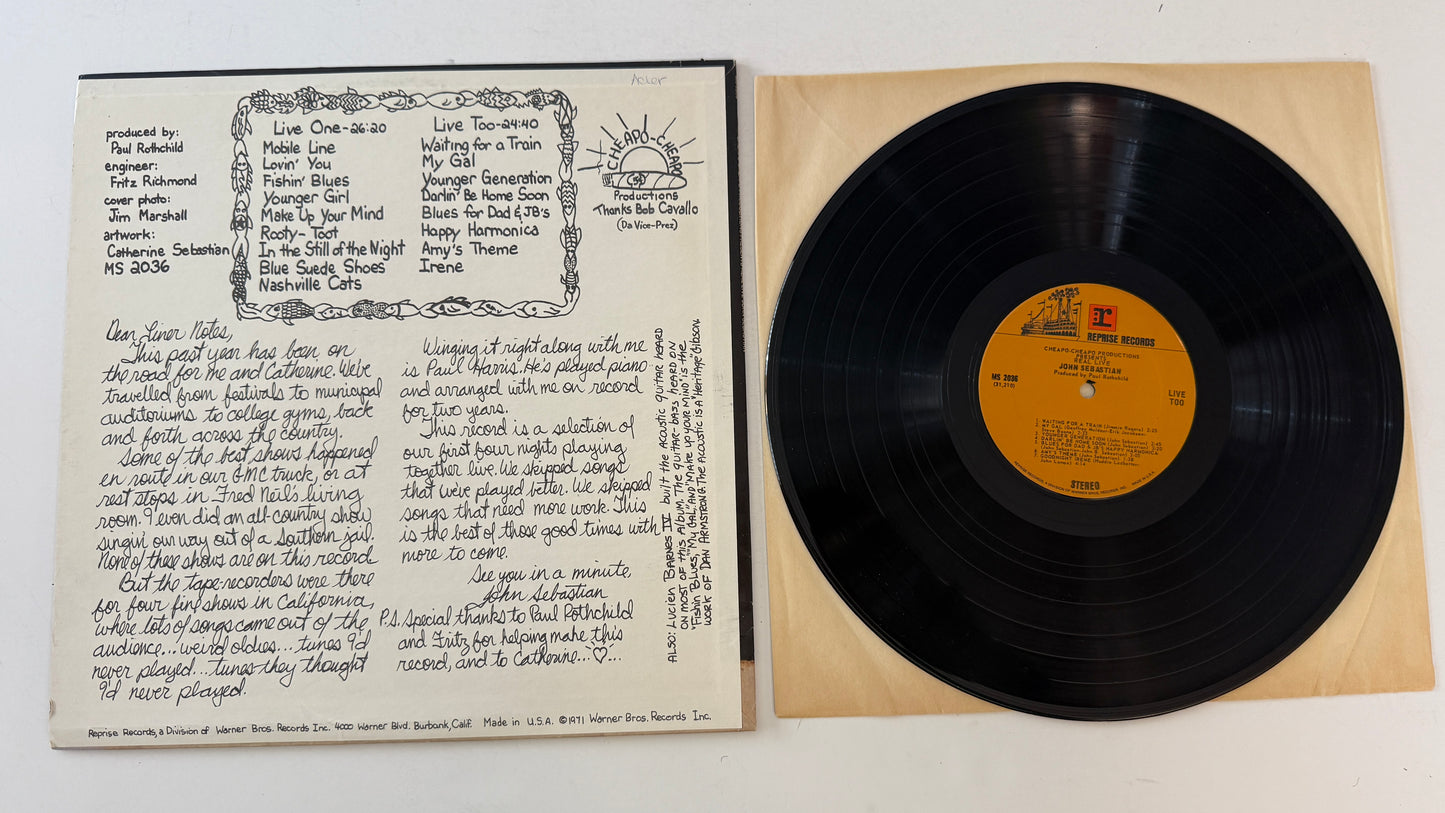 Acker
produced by:
Paul Rothchild
engineer:
Fritz Richmond
cover photo:
Jim Marshall
artwork:
Catherine Sebastian
MS 2036
Live One-26:20
Mobile Line
Lovin' You
Fishin' Blues
Younger Girl
Make Up Your Mind
Rooty-Toot
In the Still of the Night
Blue Suede Shoes
Nashville Cats
Live Too-24:40
Waiting for a Train
My Gal
Younger Generation
Darlin' Be Home Soon
Blues for Dad & JB's
Happy Harmonica
Amy's Theme
Irene
CHEAPO-CHEAPO
Productions
Thanks Bob Cavallo
(Da Vice-Prez)
Dear Liner Notes,
This past year has been on
the road for me and Catherine. We've
travelled from festivals to municipal
auditoriums to college gyms, back
and forth across the country.
Some of the best shows happened
en route in our GMC truck, or at
rest stops in Fred Neil's living
room. I even did an all-country show
singin' our way out of a Southern jail.
None of these shows are on this record.
But the tape-recorders were there
for four fine shows in California,
where lots of songs came out of the
audience... weird oldies... tunes I'd
never played... tunes they thought
I'd never played.
Winging it right along with me
is Paul Harris. He's played piano
and arranged with me on record
for two years.
This record is a selection of
our first four nights playing
together live. We skipped songs
that we've played better. We skipped
songs that need more work. This
is the best of those good times with
more to come.
See you in a minute,
John Sebastian
P.S. Special thanks to Paul Rothchild
and Fritz for helping make this
record, and to Catherine...♡...
ALSO: LUCIEN BARNES IV built the acoustic guitar heard
on most of this album. The guitar-bass heard on
"Fishin' Blues," "My Gal," and "Make up your mind" is the
work of DAN ARMSTRONG. The acoustic is a "Heritage" Gibson.
Reprise Records, a Division of Warner Bros. Records Inc. 4000 Warner Blvd. Burbank, Calif. Made in U.S.A. ©1971 Warner Bros. Records Inc.
:r
REPRISE RECORDS
CHEAPO-CHEAPO PRODUCTIONS
PRESENTS
REAL LIVE
JOHN SEBASTIAN
Produced by Paul Rothchild
MS 2036
(31,210)
LIVE
TOO
1. WAITING FOR A TRAIN (Jimmie Rodgers) 3:25
3. YOUNGER GENERATION (John Sebastian) 2:45
4. DARLIN' BE HOME SOON (John Sebastian) 3:20
5. BLUES FOR DAD & JB'S HAPPY HARMONICA
6. AMY'S THEME (John Sebastian)
7. GOODNIGHT IRENE (Huddie Ledbetter-
John Lomax) 4:14
STEREO